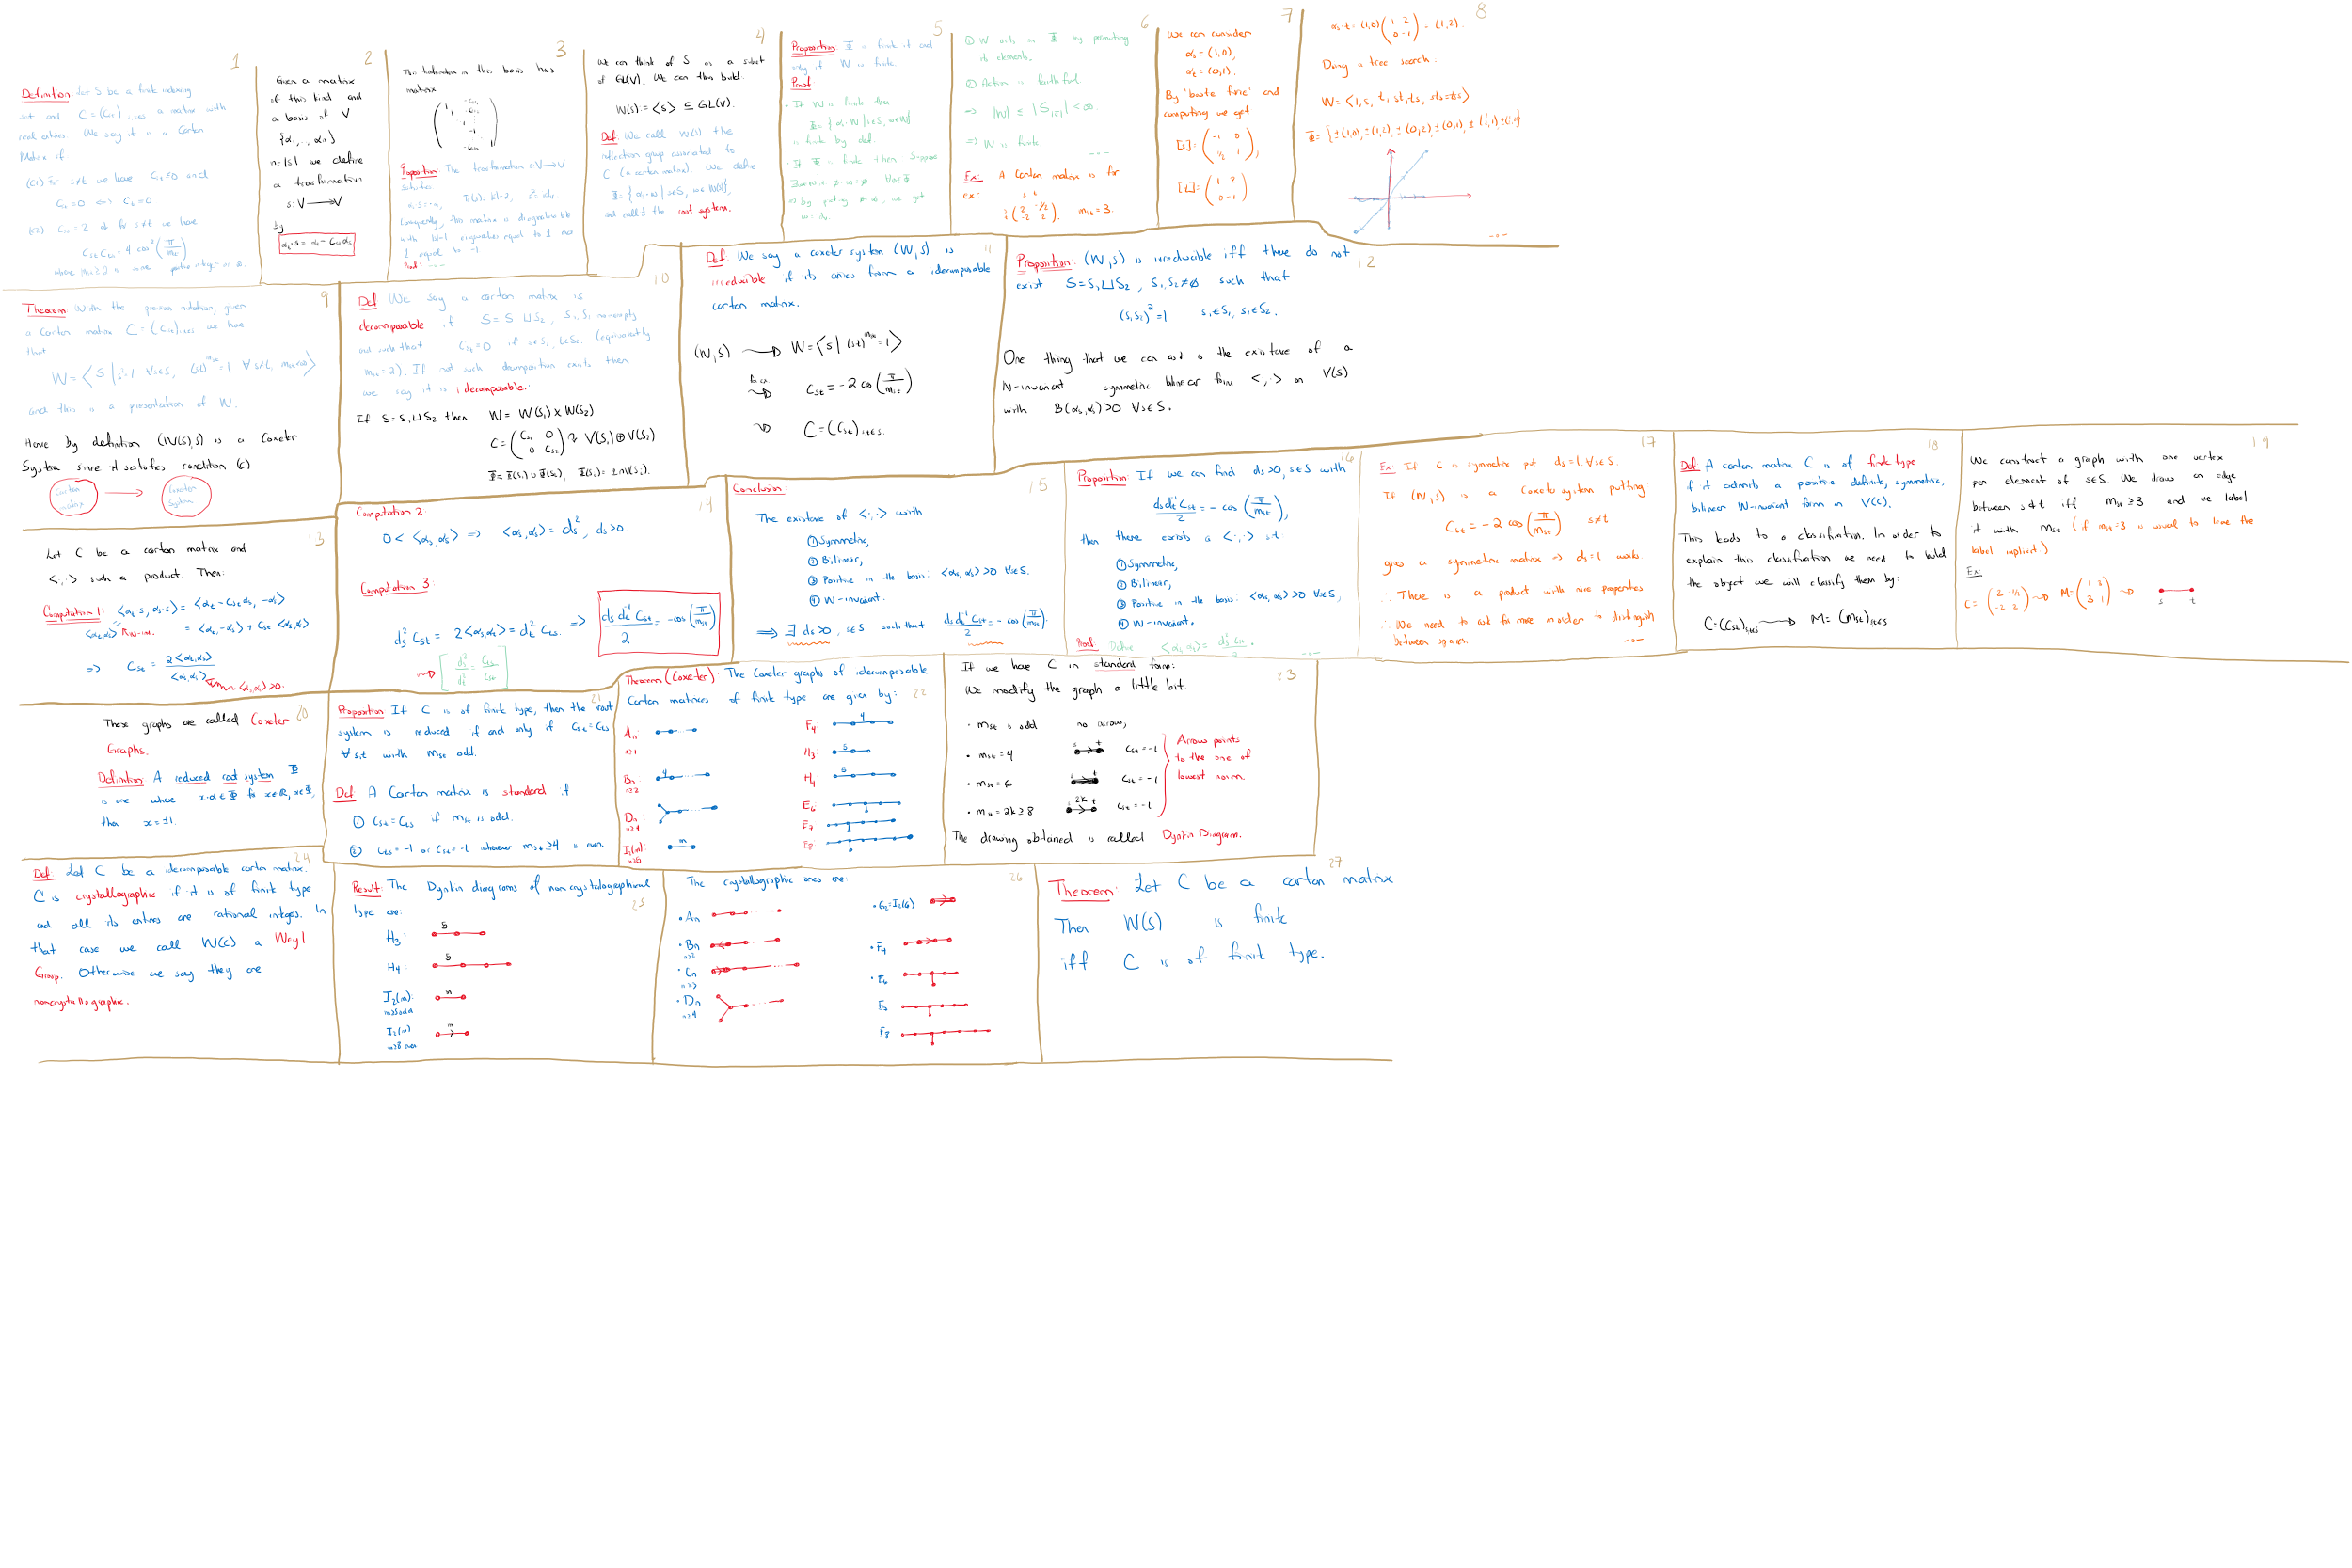 1
Definition: Let S be a finite indexing
set and C = (Cst)s,t∈S a matrix with
real entries. We say it is a Cartan
Matrix if
(C1) For s≠t we have Cst ≤ 0 and
Cst = 0 ⟺ Cts = 0
(C2) Css = 2 and for s≠t we have
Cst Cts = 4 cos²(π/mst)
where mst ≥ 2 is some positive integer or ∞.
2
Given a matrix
of this kind and
a basis of V
{α1, ..., αn}
n=|S| we define
a transformation
s: V → V
by
αt·s = αt - Cst αs
3
This transformation in this basis has
matrix
Proposition: The transformation s: V→V
satisfies
αs·s = -αs, Tr(s) = |S|-2, s² = id.
Consequently, this matrix is diagonalizable
with |S|-1 eigenvalues equal to 1 and
1 equal to -1
Proof: ---
4
We can think of S as a subset
of GL(V). We can then build:
W(S) := <S> ≤ GL(V).
Def: We call W(S) the
reflection group associated to
C (a cartan matrix). We define
Φ = {αs·w | s∈S, w∈W(S)},
and call it the root system.
5
Proposition: Φ is finite if and
only if W is finite.
Proof
· If W is finite then
Φ = {αs·w | s∈S, w∈W}
is finite by def.
· If Φ is finite then Suppose
6
① W acts on Φ by permuting
its elements.
② Action is faithful.
⇒ |W| ≤ |S|Φ|| < ∞.
⇒ W is finite.
---
Ex: A Cartan matrix is for
ex: s t
s t (2 -1/2 -2 2). mst = 3.
7
We can consider
αs = (1,0),
αt = (0,1).
By "brute force" and
computing we get
[s] = (-1 0 1/2 1),
[t] = (1 2 0 -1)
8
αs·t = (1,0)(1 2 0 -1) = (1,2).
Doing a tree search:
W = <1, s, t, st, ts, sts=tst>
---
9
Theorem: With the previous notation, given
a Cartan matrix C = (Cst)s,t∈S we have
that
W = <S | s²=1 ∀s∈S, (st)^mst = 1 ∀s≠t, mst<∞>
and this is a presentation of W.
Hence by definition (W(S),S) is a Coxeter
System since it satisfies condition (C)
Cartan matrix → Coxeter System
10
Def We say a cartan matrix is
decomposable if S = S1 ⊔ S2, S1, S2 nonempty
and such that Cst = 0 if s∈S1, t∈S2. (equivalently
mst = 2). If not such decomposition exists then
we say it is idecomposable.
If S = S1 ⊔ S2 then W = W(S1) × W(S2)
C = (CS1 0 0 CS2) ↷ V(S1) ⊕ V(S2)
Φ = Φ(S1) ∪ Φ(S2), Φ(Si) = Φ ∩ V(Si).
11
Def: We say a coxeter system (W,S) is
irreducible if its arises from a idecomposable
cartan matrix.
(W,S) ⟶ W = <S | (st)^mst = 1>
Cst = -2 cos(π/mst)
C = (Cst)s,t∈S.
12
Proposition: (W,S) is irreducible iff there do not
exist S = S1 ⊔ S2, S1, S2 ≠ ∅ such that
(s1 s2)² = 1 s1∈S1, s2∈S2.
One thing that we can ask is the existance of a
W-invariant symmetric bilinear form <·,·> on V(S)
with B(αs,αs) > 0 ∀s∈S.
13
Let C be a cartan matrix and
<·,·> such a product. Then:
Computation 1: <αt·s, αs·s> = <αt - Cst αs, -αs>
<αt,αs> W-inv. = <αt,-αs> + Cst <αs,αs>
⇒ Cst = 2<αt,αs>/<αs,αs>
<αs,αs> > 0.
14
Computation 2:
0 < <αs,αs> ⇒ <αs,αs> = ds², ds > 0.
Computation 3:
ds² Cst = 2<αs,αt> = dt² Cts. ⇒ ds dt⁻¹ Cst / 2 = -cos(π/mst)
[ds²/dt² = Cts/Cst]
15
Conclusion:
The existance of <·,·> with
① Symmetric,
② Bilinear,
③ Positive in the basis: <αs,αs> > 0 ∀s∈S.
④ W-invariant.
⇒ ∃ ds>0, s∈S such that ds dt⁻¹ Cst / 2 = -cos(π/mst).
16
Proposition: If we can find ds>0, s∈S with
ds dt⁻¹ Cst / 2 = -cos(π/mst),
then there exists a <·,·> st:
① Symmetric,
② Bilinear,
③ Positive in the basis: <αs,αs> > 0 ∀s∈S,
④ W-invariant.
Proof: Define <αs,αt> = ds² Cst / 2.
---
17
Ex: If C is symmetric put ds = 1. ∀s∈S.
If (W,S) is a Coxeter system putting
Cst = -2 cos(π/mst) s≠t
gives a symmetric matrix → ds=1 works.
∴ There is a product with nice properties
∴ We need to ask for more in order to distinguish
between spaces.
---
18
Def A cartan matrix C is of finite type
if it admits a positive definite, symmetric,
bilinear W-invariant form in V(C).
This leads to a classification. In order to
explain this classification we need to build
the object we will classify them by:
C = (Cst)s,t∈S ⟶ M = (mst)s,t∈S
19
We construct a graph with one vertex
per element of s∈S. We draw an edge
between s≠t iff mst ≥ 3 and we label
it with mst (if mst=3 is usual to leave the
label implicit.)
Ex:
C = (2 -1/2 -2 2) M = (1 3 3 1) s t
20
These graphs are called Coxeter
Graphs.
Definition: A reduced root system Φ
is one where x·α∈Φ for x∈ℝ, α∈Φ,
then x = ±1.
21
Proposition If C is of finite type, then the root
system is reduced if and only if Cst = Cts
∀ s,t with mst odd.
Def A Cartan matrix is standard if
① Cst = Cts if mst is odd.
② Cts = -1 or Cst = -1 whenever mst ≥ 4 is even.
22
Theorem (Coxeter): The Coxeter graphs of idecomposable
Cartan matrices of finite type are given by:
An: n≥1
Bn: n≥2 4
Dn: n≥4
I2(m): m≥5 m
F4: 4
H3: 5
H4: 5
E6:
E7:
E8:
23
If we have C in standard form:
We modify the graph a little bit.
· mst is odd no arrow,
· mst = 4 s t Cst = -1
· mst = 6 s t Cst = -1
· mst = 2k ≥ 8 s 2k t Cst = -1
Arrow points
to the one of
lowest norm.
The drawing obtained is called Dynkin Diagram.
24
Def: Let C be a idecomposable cartan matrix.
C is crystallographic if it is of finite type
and all its entries are rational integers. In
that case we call W(C) a Weyl
Group. Otherwise we say they are
noncrystallographic.
25
Result: The Dynkin diagrams of noncrystalographical
type are:
H3: 5
H4: 5
I2(m): m≥5 odd m
I2(m) m≥8 even m
26
The crystallographic ones are:
· An
· Bn n≥2
· Cn n≥3
· Dn n≥4
· G2 = I2(6)
· F4
· E6
E7
E8
27
Theorem: Let C be a cartan matrix
Then W(S) is finite
iff C is of finite type.